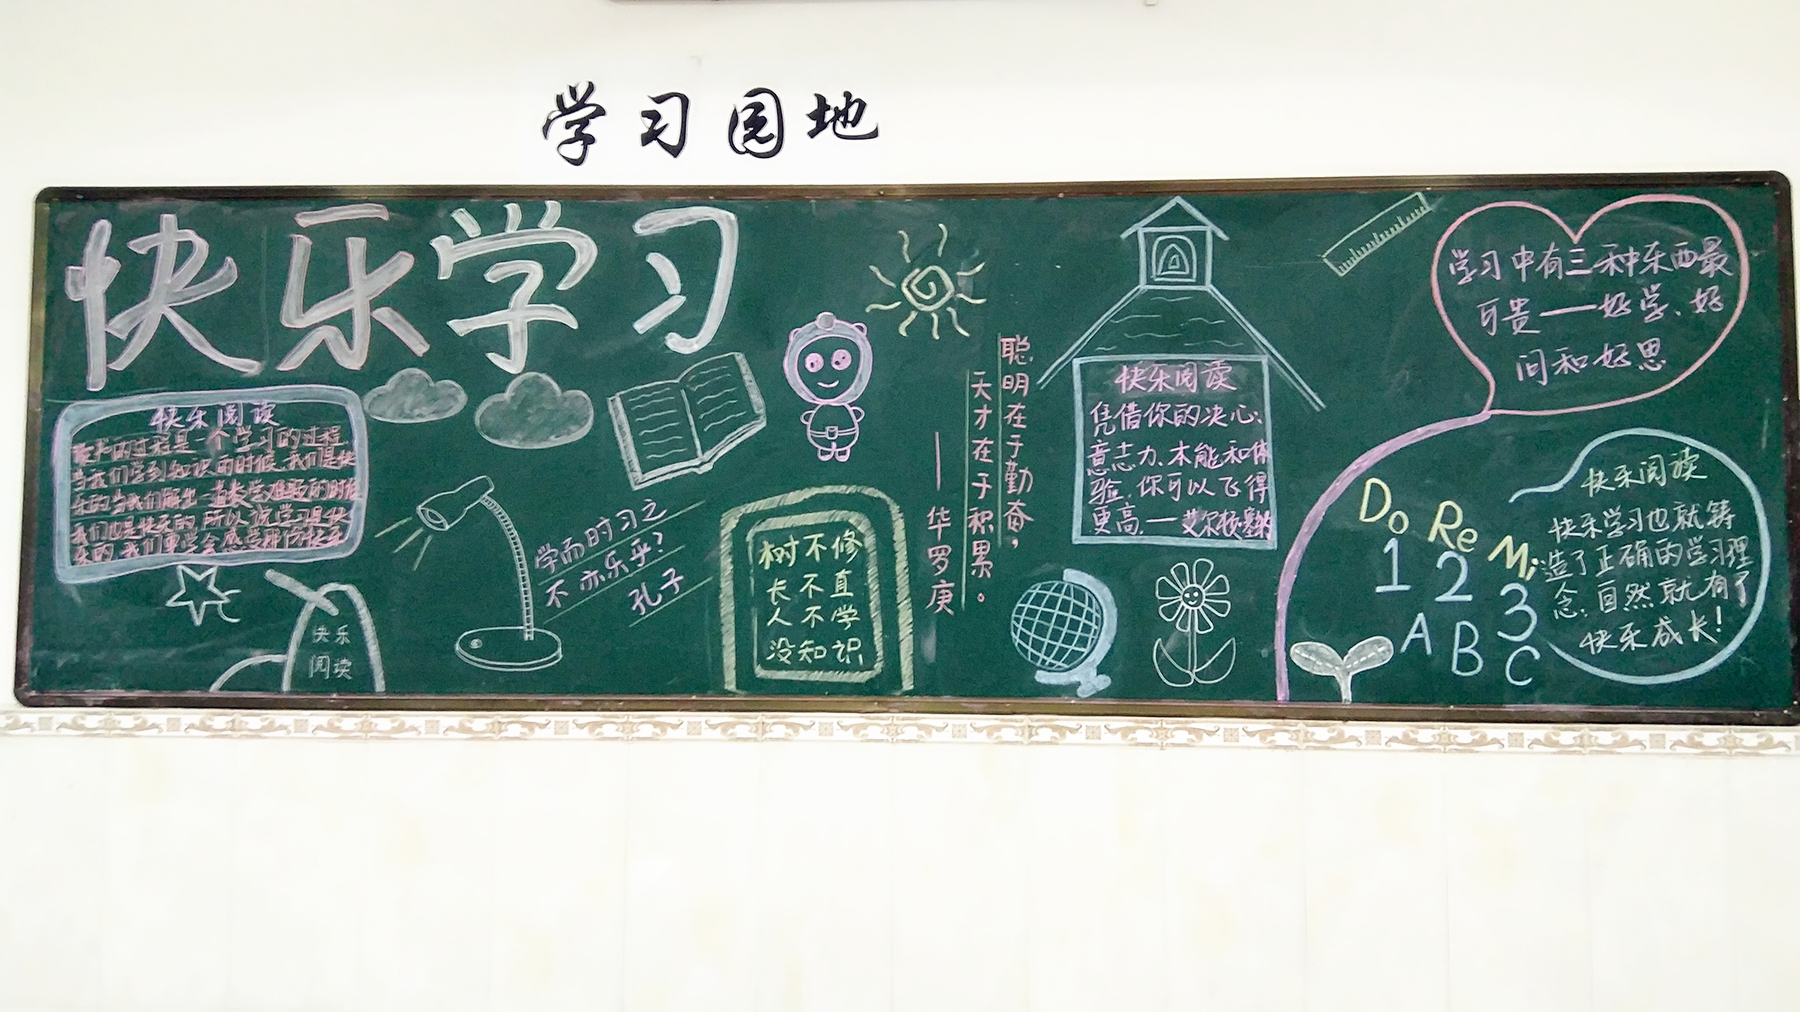 学习园地
快乐学习
快乐阅读
的过程是一个学习的过程
当我们学到知识的时候,我们是快
乐的,当我们解出一道类学难题的时候
我们也是快乐的,所以说学习是快
乐的,我们要学会感受
快乐
阅读
学而时习之
不亦乐乎?
孔子
树不修
长不直
人不学
没知识
聪明在于勤奋,
天才在于积累。
——华罗庚
快乐阅读
凭借你的决心,
意志力、本能和体
验,你可以飞得
更高.—艾尔顿·塞纳
学习中有三种东西最
可贵——好学、好
问和好思
Do Re Mi
1 2 3
A B C
快乐阅读
快乐学习也就铸
造了正确的学习理
念,自然就有了
快乐成长!